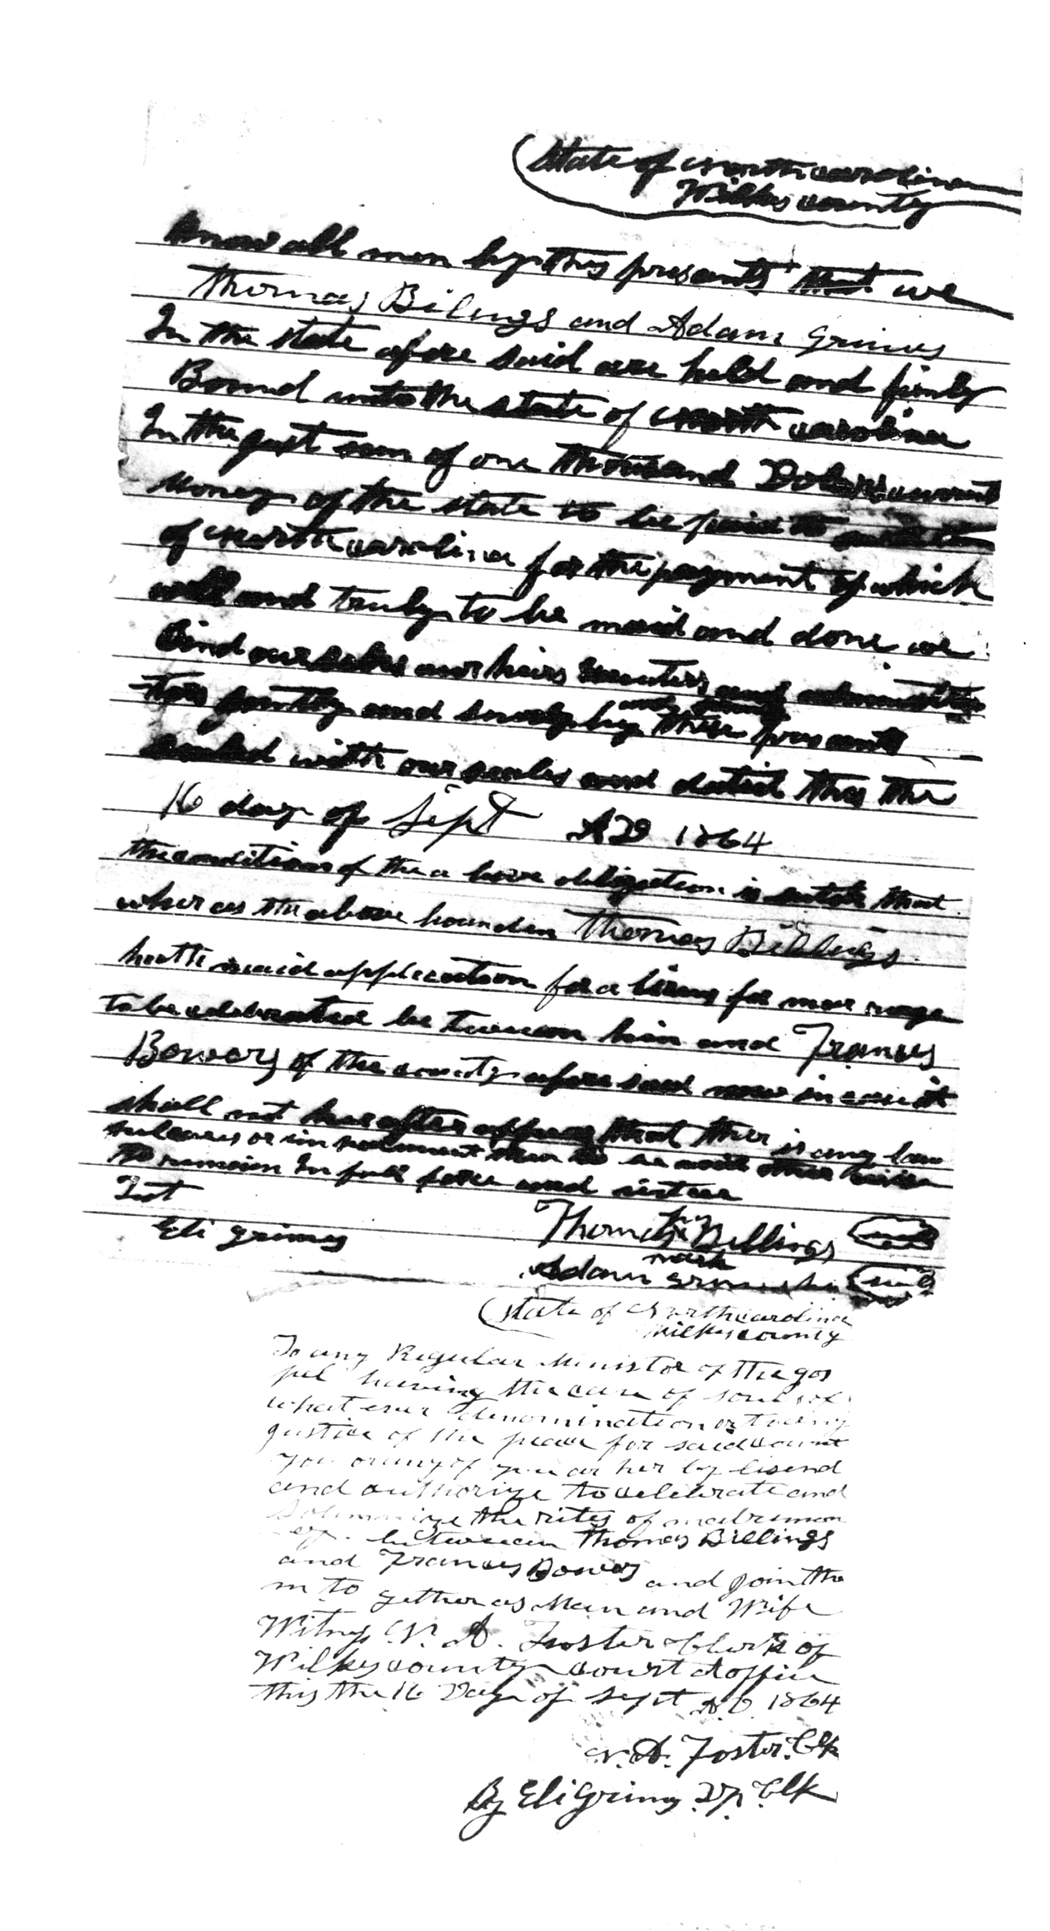 State of North carolina
Wilkes county
Know all men by thes presents that we
Thomas Bilings and Adam Grimes
In the state afore said are held and firmly
Bound unto the state of North carolina
In the just sum of one thousand Dolars current
money of the state to be paid to
of North carolina for the payment of which
well and truly to be maid and done we
Bind our selves our heirs Executers and administra
tors jointly and severly by these presants
sealed with our seales and dated this the
16 day of Sept AD 1864
the condition of the a bove obligation is sutch that
wher as the above bounden Thomas Billings
hath maid application for a lisens for mar rage
to be celebrated be tween him and Frances
Bowers of the county afore said now in case it
shall not hereafter appear that ther is any law
to remain In full force and virtue
Test
Eli Grimes
Thomas his Billings
mark
Adam
State of North carolina
Wilkes county
To any Regular Minister of the gos
pel having the care of souls of
what ever denomination or to any
justice of the peace for said count
you or any of you ar her by lisend
and authorize to celebrate and
Solemnize the rites of matrimon
ey between Thomas Billings
and Frances Bowers and join the
m to gether as Man and Wife
Witnes N. A. Foster Clerk of
Wilkes county court at office
this the 16 Day of Sept A D 1864
N. A. Foster. Clk
By Eli Grimes Dp. Clk